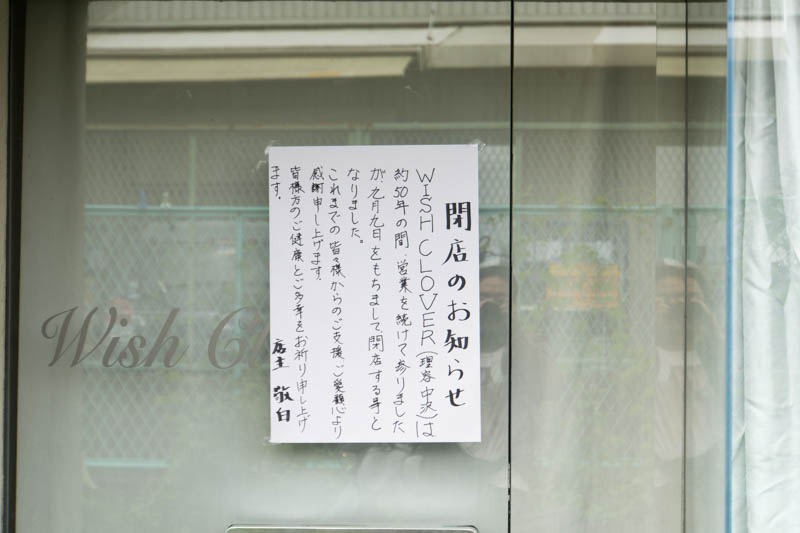 閉店のお知らせ
WISH CLOVER(理容中沢)は
約50年の間、営業を続けて参りました
が、九月九日をもちまして、閉店する事と
なりました。
これまでの皆々様からのご支援、ご愛顧心より
感謝申し上げます。
皆様方のご健康とご多幸をお祈り申し上げ
ます。
店主 敬白
Wish